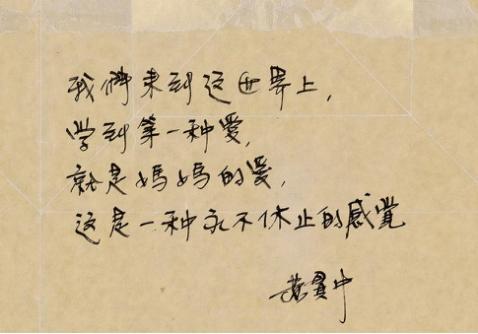 我們来到这世界上，
学到第一种爱，
就是妈妈的爱，
这是一种永不休止的感觉
黄貫中